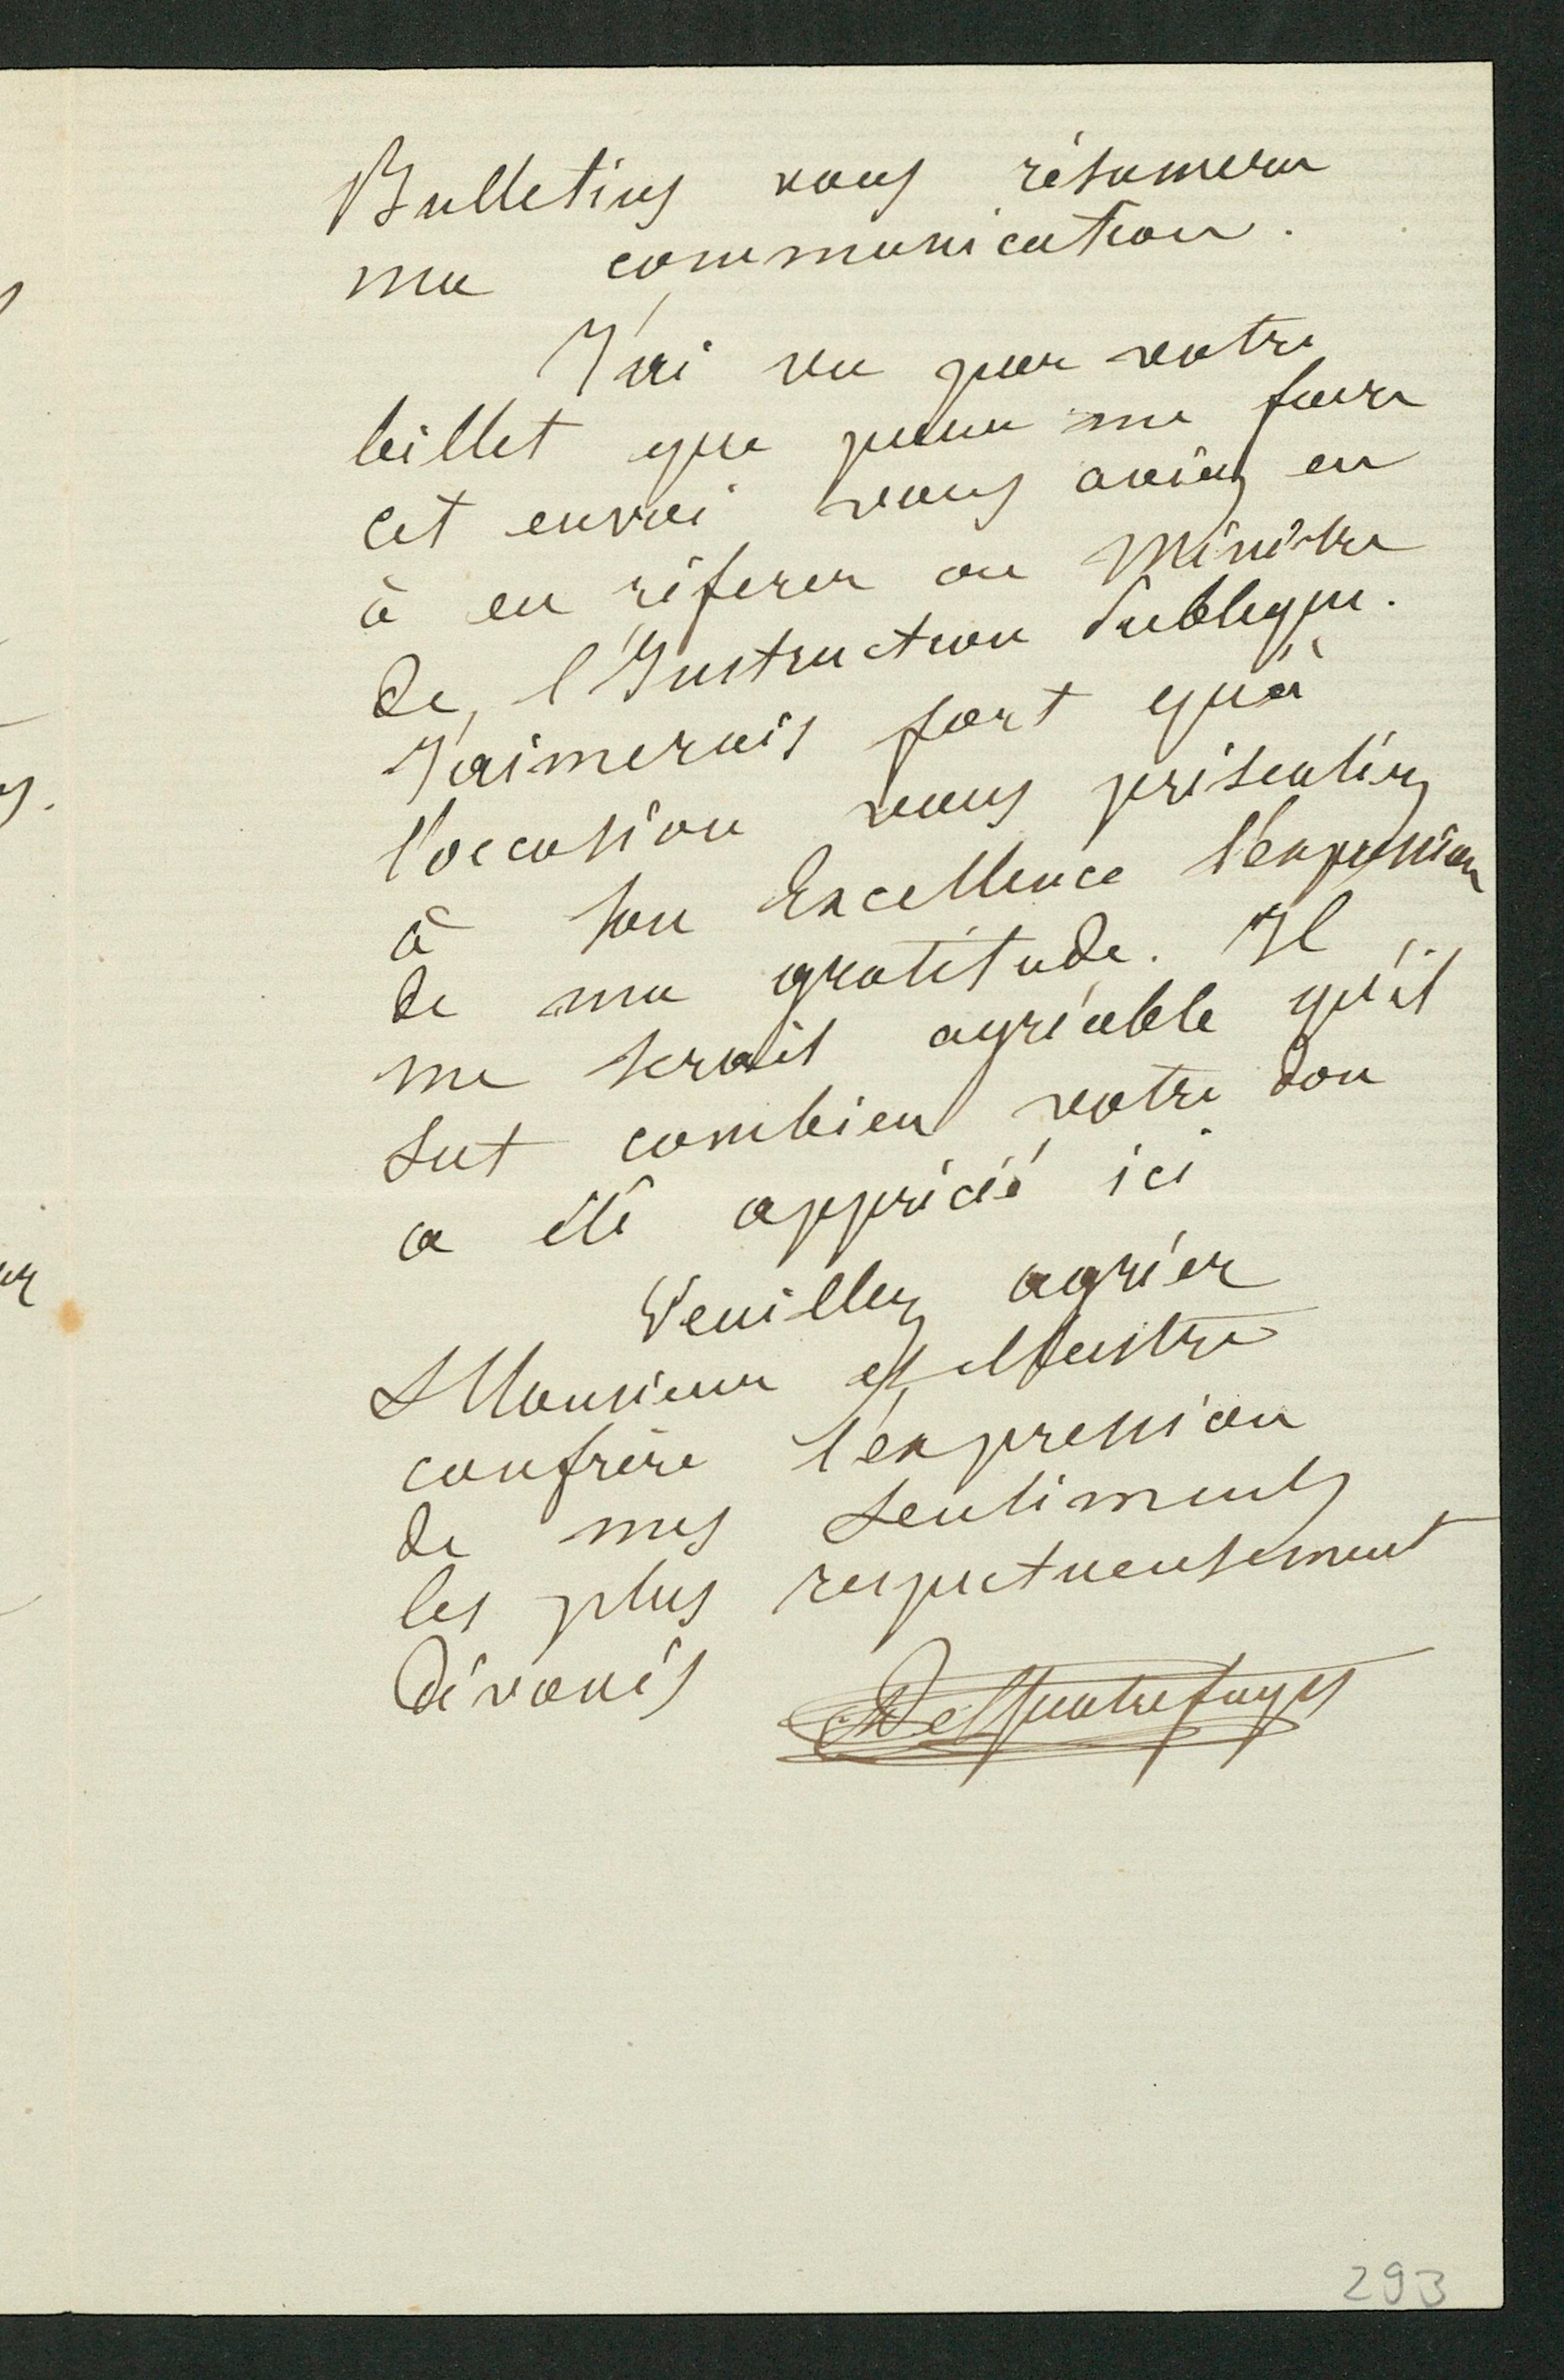 Bulletins vous résumera
ma communication.
J'ai vu par votre
billet que pour me faire
cet envoi vous aviez eu
à en référer au Ministre
de l'Instruction Publique.
J'aimerais fort qu'à
l'occasion vous présentiez
à son Excellence l'expression
de ma gratitude. Il
me serait agréable qu'il
sut combien votre don
a été apprécié ici
Veuillez agréer
Monsieur et illustre
confrère l'expression
de mes sentiments
les plus respectueusement
dévoués
De Quatrefages
293